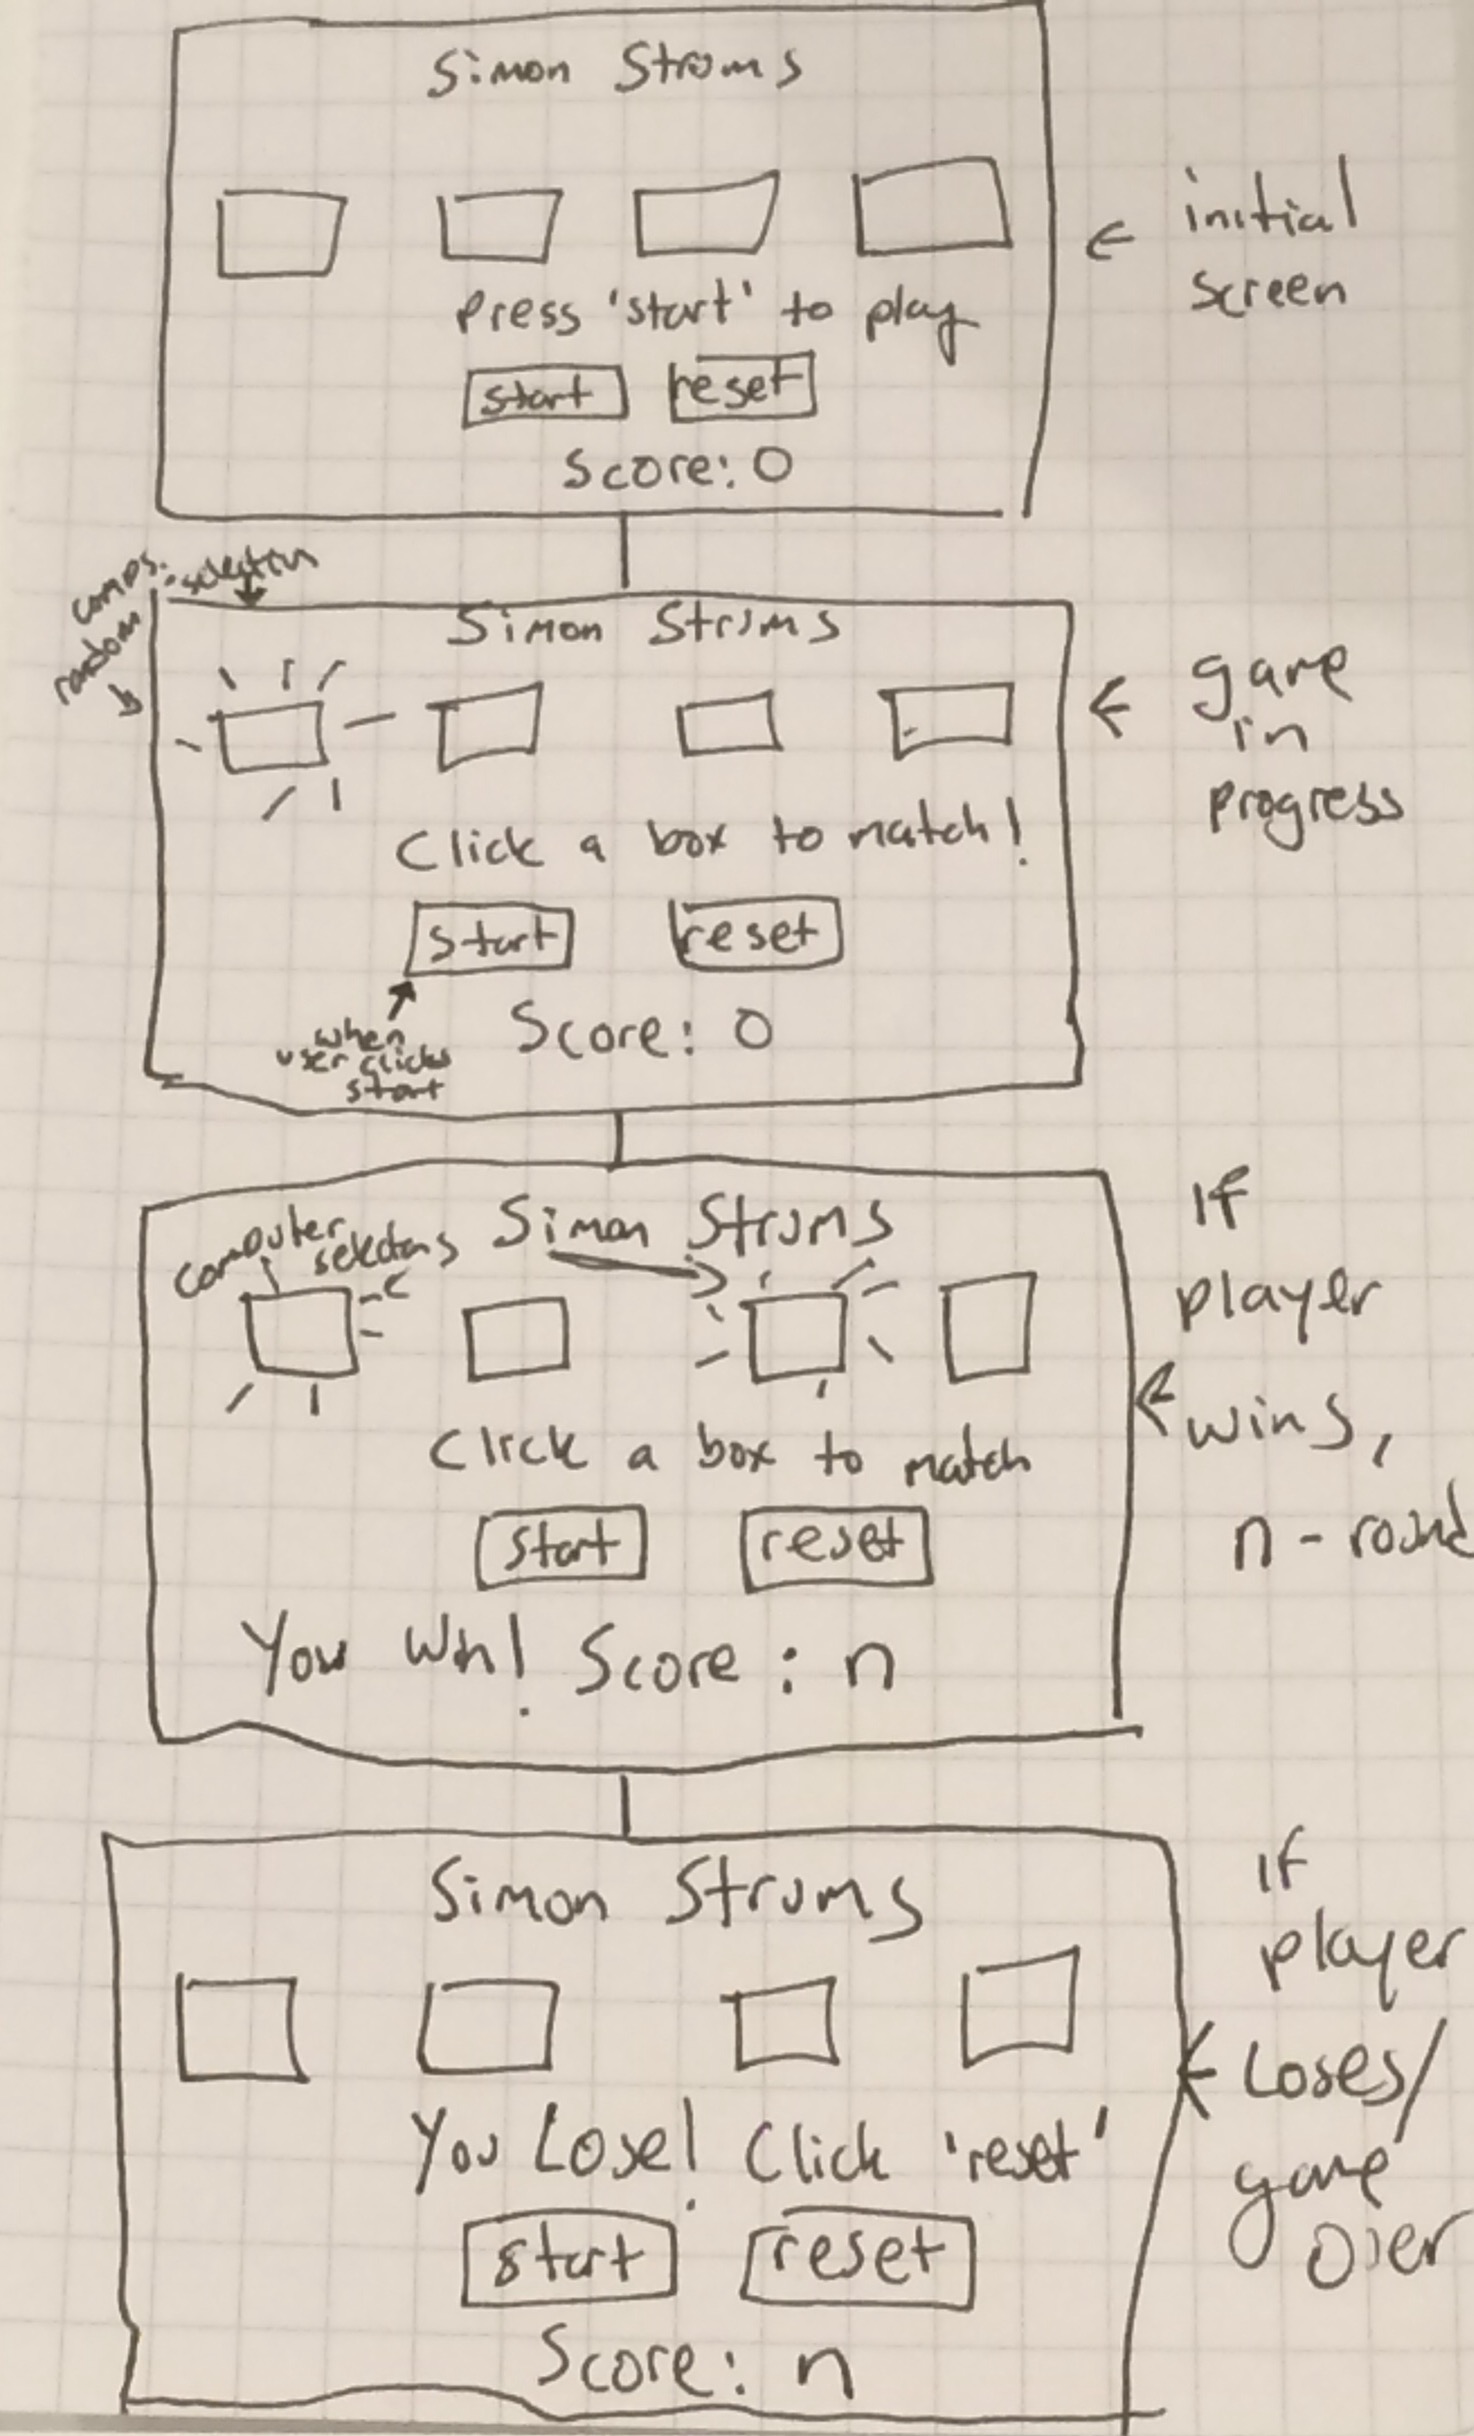 Simon Strums
Press 'start' to play
start reset
Score: 0
initial
screen
comps.
random selection
Simon Strums
Click a box to match!
start reset
when
user clicks
start
Score: 0
game
in
progress
Simon Strums
computer
selections
Click a box to match
start reset
You Win! Score: n
If
player
wins,
n-round
Simon Strums
You Lose! Click 'reset'
start reset
Score: n
If
player
Loses/
game
over